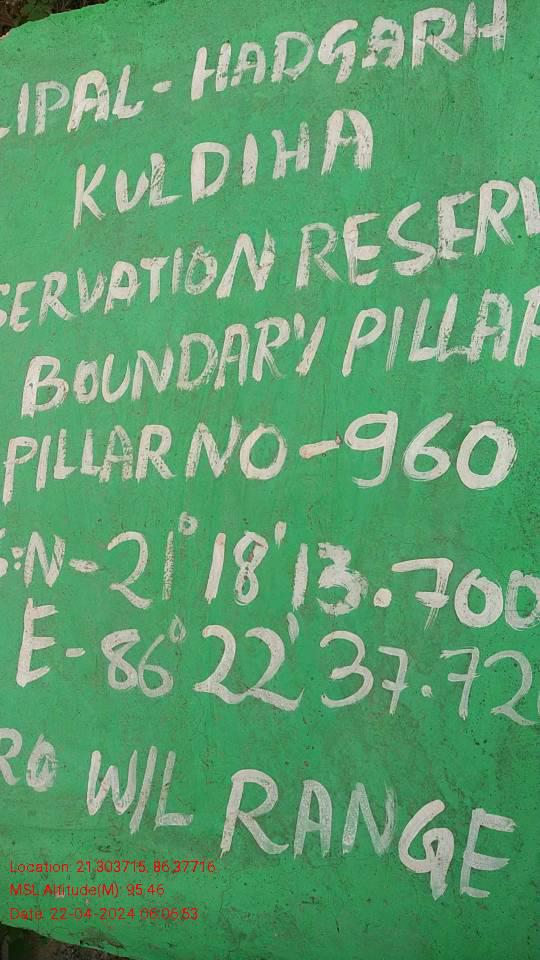 LIPAL-HADGARH
KULDIHA
SERVATION RESERV
BOUNDARY PILLAR
PILLAR NO-960
S:N-21°18'13.700
E-86°22'37.72
RO W/L RANGE
Location: 21.303715, 86.37716
MSL Altitude(M): 95.46
Date: 22-04-2024 06:06:53